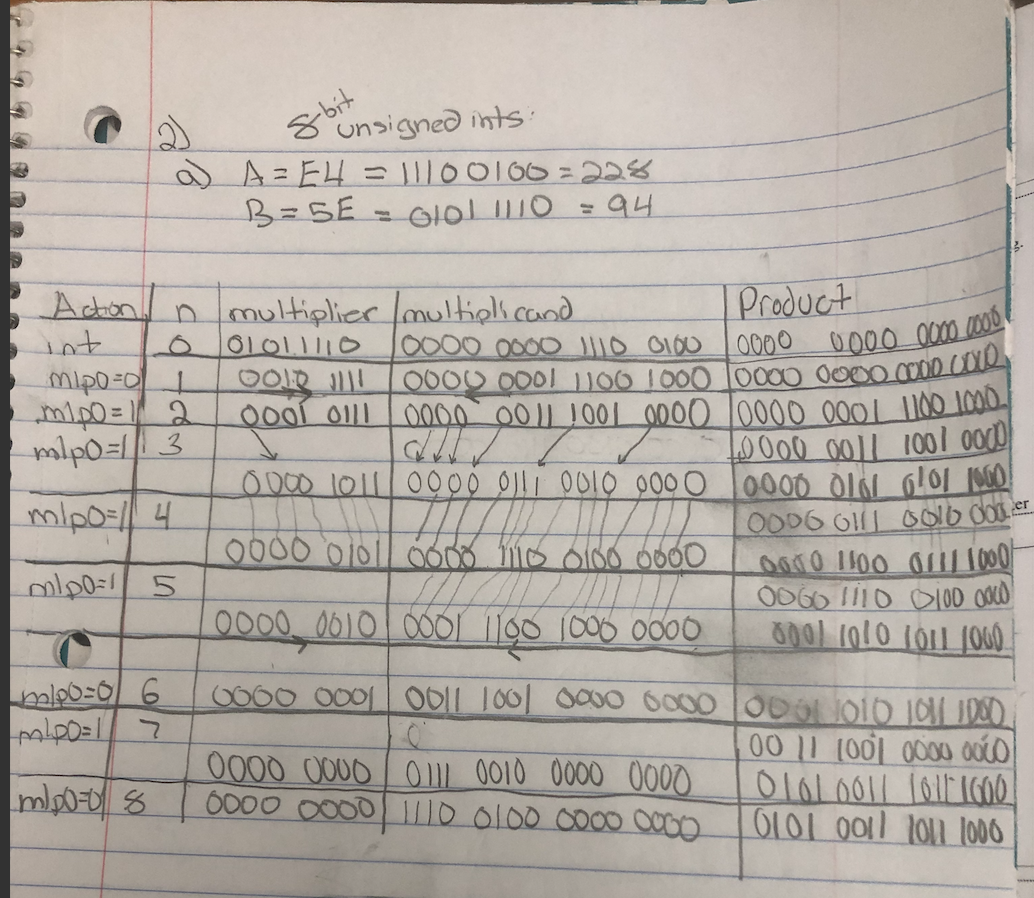 2) 8 bit unsigned ints:
a) A = E4 = 11100100 = 228
B = 5E = 0101 1110 = 94
Action n multiplier multiplicand Product
int 0 01011110 0000 0000 1110 0100 0000 0000 0000 0000
mlp0=0 1 0010 1111 0000 0001 1100 1000 0000 0000 0000 0000
mlp0=1 2 0001 0111 0000 0011 1001 0000 0000 0001 1100 1000
mlp0=1 3 0000 0011 1001 0000
0000 1011 0000 0111 0010 0000 0000 0101 0101 1000
mlp0=1 4 0000 0111 0010 000
0000 0101 0000 1110 0100 0000 0000 1100 0111 1000
mlp0=1 5 0000 1110 0100 0000
0000 0010 0001 1100 1000 0000 0001 1010 1011 1000
mlp0=0 6 0000 0001 0011 1001 0000 0000 0001 1010 1011 1000
mlp0=1 7 0011 1001 0000 0000
0000 0000 0111 0010 0000 0000 0101 0011 1011 1000
mlp0=0 8 0000 0000 1110 0100 0000 0000 0101 0011 1011 1000
er